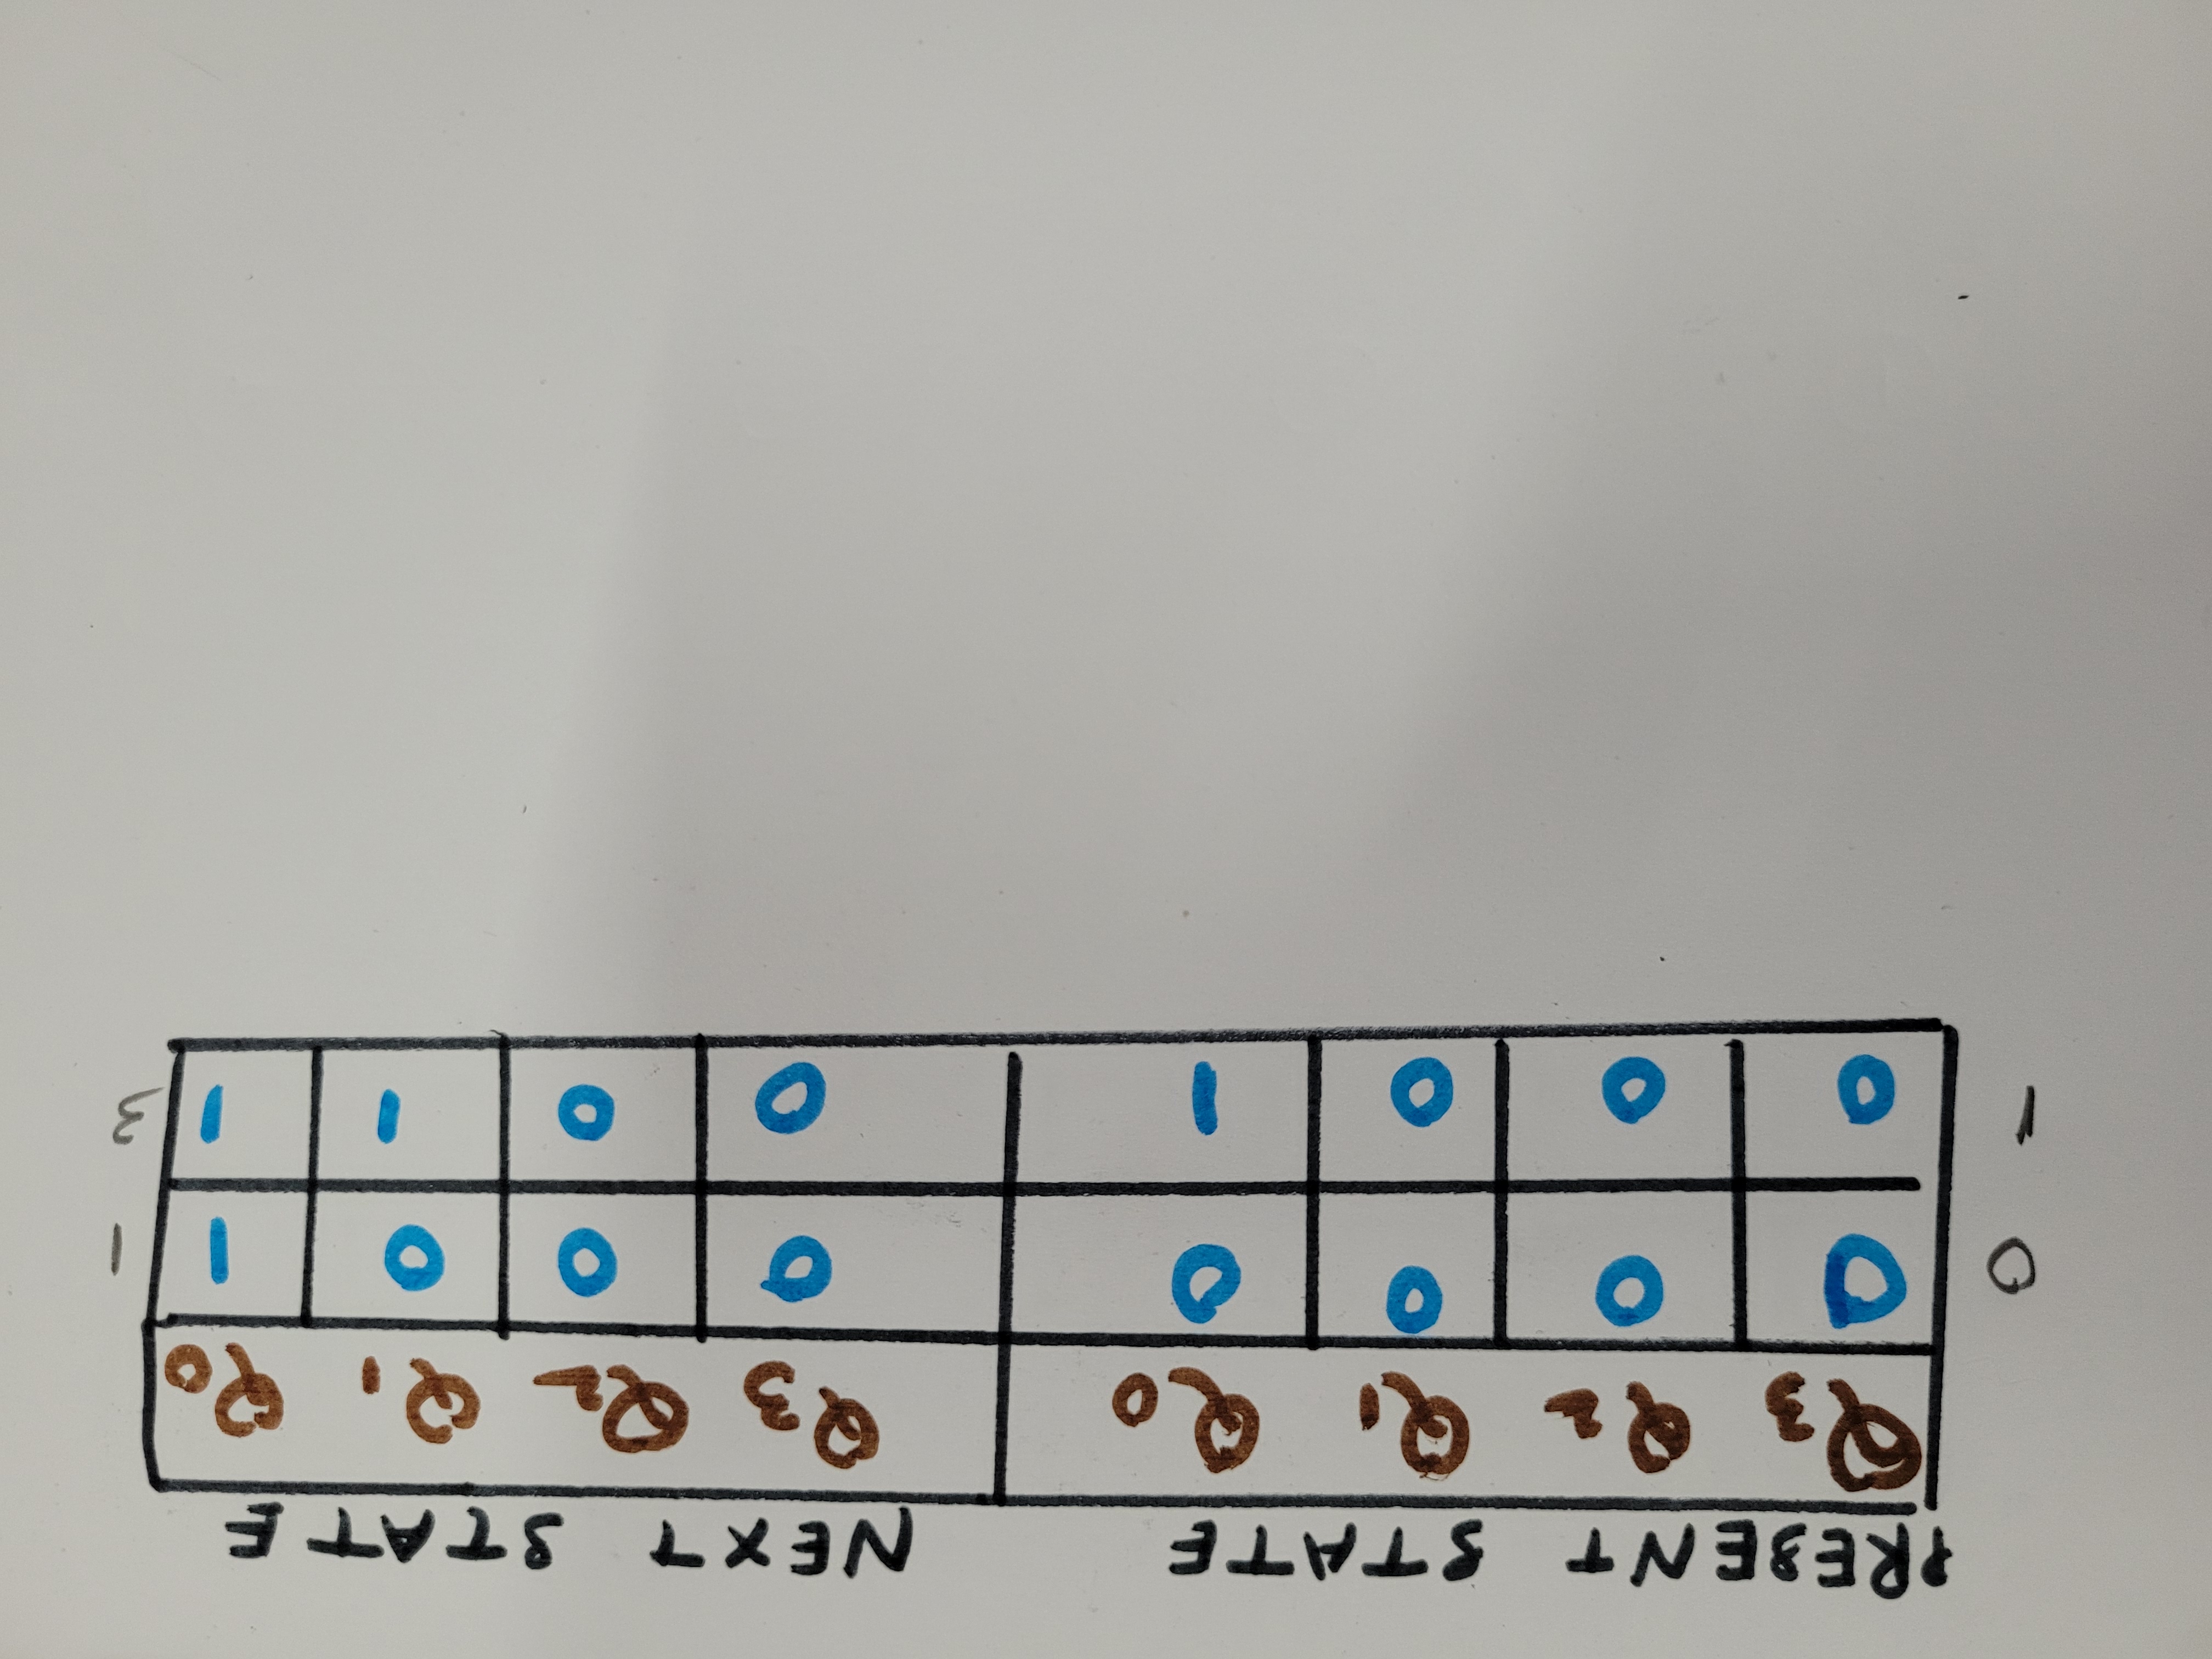 PRESENT STATE NEXT STATE
Q3 Q2 Q1 Q0 Q3 Q2 Q1 Q0
0 0 0 0 0 0 0 0 1 1
1 0 0 0 1 0 0 1 1 3